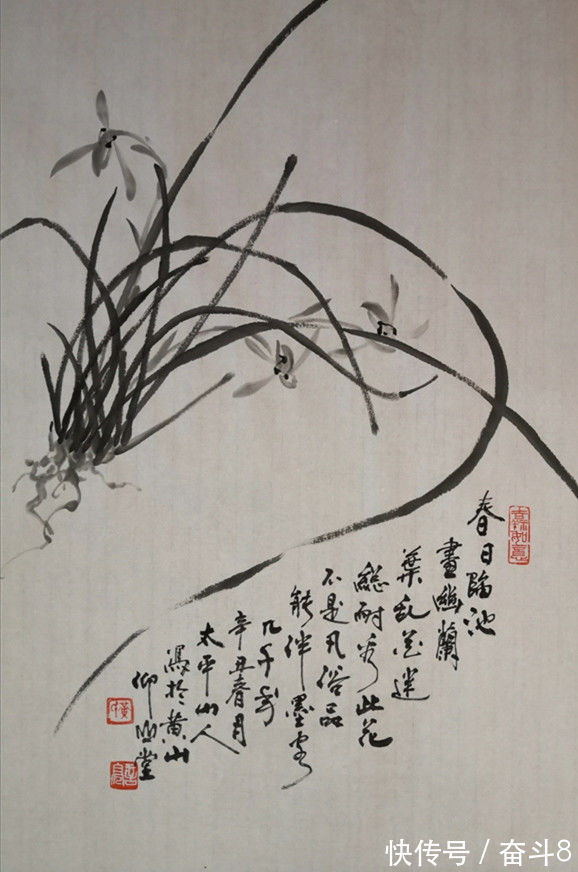 春日臨池
畫幽蘭
葉亂花迷
總耐看此花
不是凡俗品
能伴墨客
几千年
辛丑春月
太平山人
寫於黄山
仰山堂
快传号 / 奋斗8